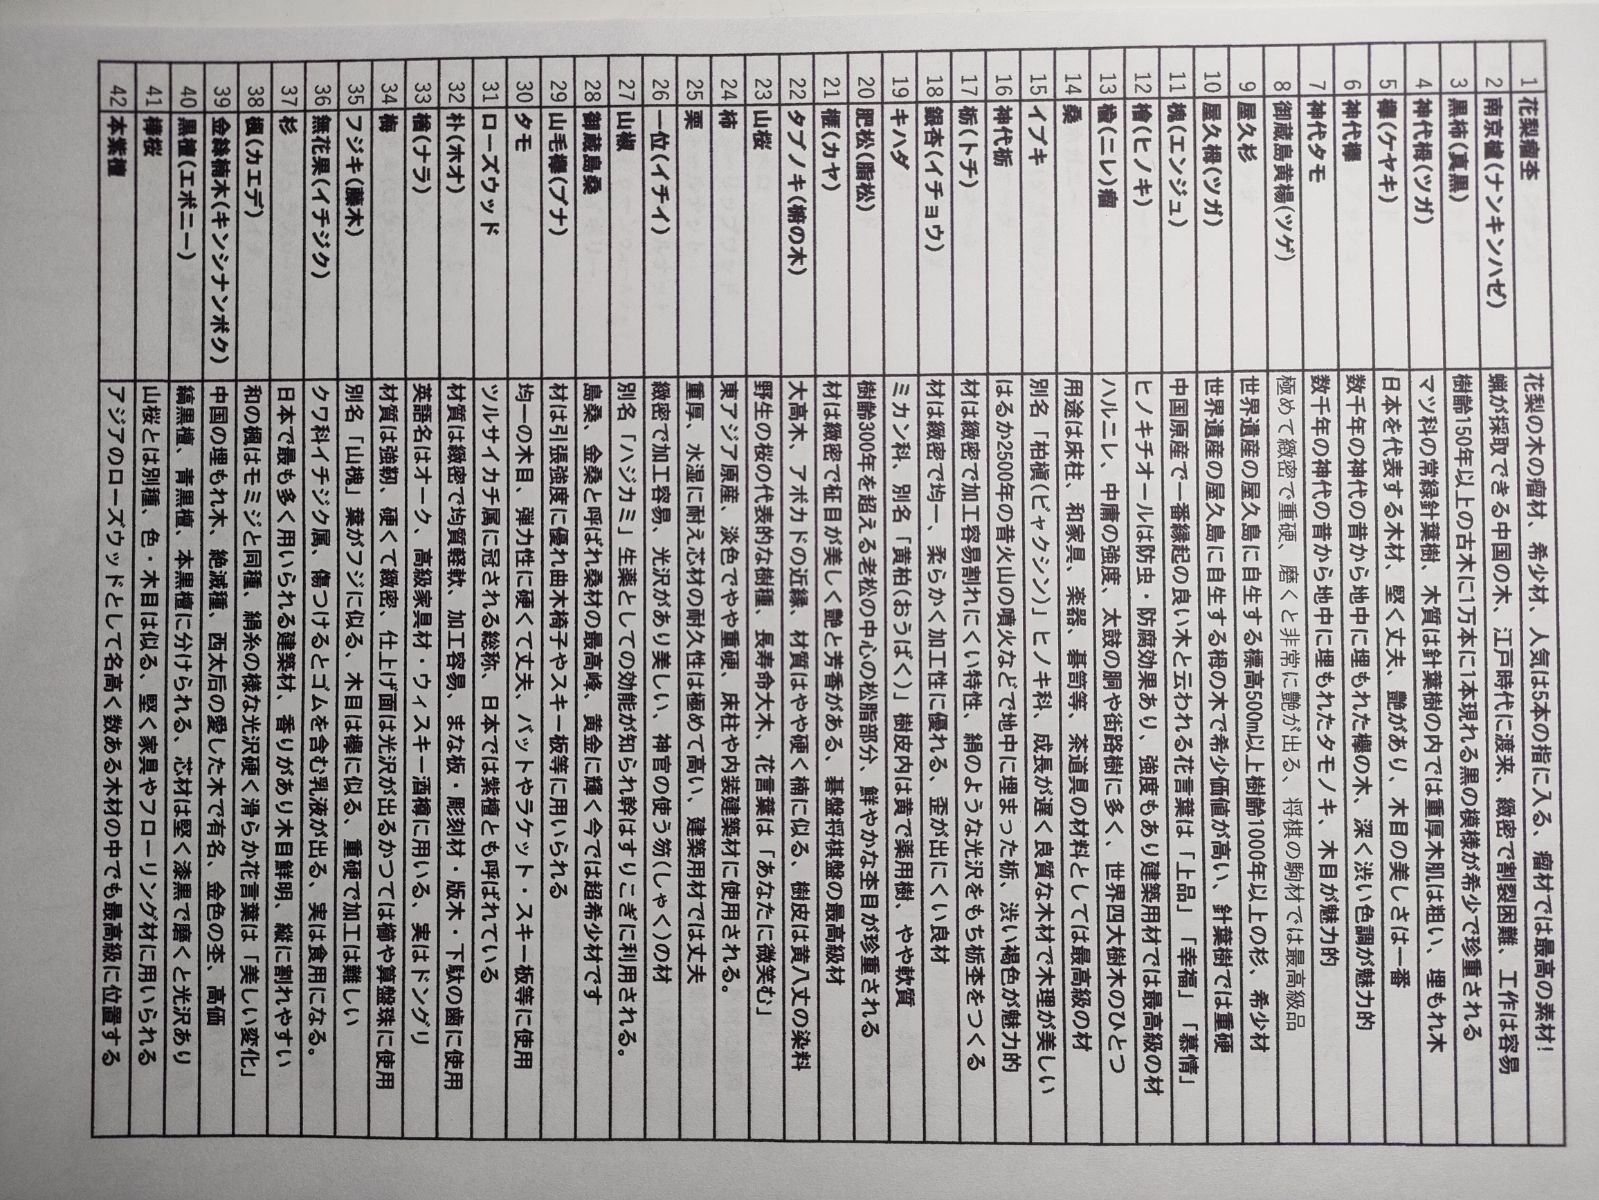 1 花梨瘤杢 花梨の木の瘤材、希少材、人気は5本の指に入る、瘤材では最高の素材!
2 南京櫨(ナンキンハゼ) 蝋が採取できる中国の木、江戸時代に渡来、緻密で割裂困難、工作は容易
3 黒柿(真黒) 樹齢150年以上の古木に1万本に1本現れる黒の模様が希少で珍重される
4 神代栂(ツガ) マツ科の常緑針葉樹、木質は針葉樹の内では重厚木肌は粗い、埋もれ木
5 欅(ケヤキ) 日本を代表する木材、堅く丈夫、艶があり、木目の美しさは一番
6 神代欅 数千年の神代の昔から地中に埋もれた欅の木、深く渋い色調が魅力的
7 神代タモ 数千年の神代の昔から地中に埋もれたタモノキ、木目が魅力的
8 御蔵島黄楊(ツゲ) 極めて緻密で重硬、磨くと非常に艶が出る、将棋の駒材では最高級品
9 屋久杉 世界遺産の屋久島に自生する標高500m以上樹齢1000年以上の杉、希少材
10 屋久栂(ツガ) 世界遺産の屋久島に自生する栂の木で希少価値が高い、針葉樹では重硬
11 槐(エンジュ) 中国原産で一番縁起の良い木と云われる花言葉は「上品」「幸福」「慕情」
12 檜(ヒノキ) ヒノキチオールは防虫・防腐効果あり、強度もあり建築用材では最高級の材
13 楡(ニレ)瘤 ハルニレ、中庸の強度、太鼓の胴や街路樹に多く、世界四大樹木のひとつ
14 桑 用途は床柱、和家具、楽器、碁笥等、茶道具の材料としては最高級の材
15 イブキ 別名「柏槇(ビャクシン)」ヒノキ科、成長が遅く良質な木材で木理が美しい
16 神代栃 はるか2500年の昔火山の噴火などで地中に埋まった栃、渋い褐色が魅力的
17 栃(トチ) 材は緻密で加工容易割れにくい特性、絹のような光沢をもち栃杢をつくる
18 銀杏(イチョウ) 材は緻密で均一、柔らかく加工性に優れる、歪が出にくい良材
19 キハダ ミカン科、別名「黄柏(おうばく)」樹皮内は黄で薬用樹、やや軟質
20 肥松(脂松) 樹齢300年を超える老松の中心の松脂部分、鮮やかな杢目が珍重される
21 榧(カヤ) 材は緻密で柾目が美しく艶と芳香がある、碁盤将棋盤の最高級材
22 タブノキ(椨の木) 大高木、アボカドの近縁、材質はやや硬く楠に似る、樹皮は黄八丈の染料
23 山桜 野生の桜の代表的な樹種、長寿命大木、花言葉は「あなたに微笑む」
24 柿 東アジア原産、淡色でやや重硬、床柱や内装建築材に使用される。
25 栗 重厚、水湿に耐え芯材の耐久性は極めて高い、建築用材では丈夫
26 一位(イチイ) 緻密で加工容易、光沢があり美しい、神官の使う笏(しゃく)の材
27 山椒 別名「ハジカミ」生薬としての効能が知られ幹はすりこぎに利用される。
28 御蔵島桑 島桑、金桑と呼ばれ桑材の最高峰、黄金に輝く今では超希少材です
29 山毛欅(ブナ) 材は引張強度に優れ曲木椅子やスキー板等に用いられる
30 タモ 均一の木目、弾力性に硬くて丈夫、バットやラケット・スキー板等に使用
31 ローズウッド ツルサイカチ属に冠される総称、日本では紫檀とも呼ばれている
32 朴(ホオ) 材質は緻密で均質軽軟、加工容易、まな板・彫刻材・版木・下駄の歯に使用
33 楢(ナラ) 英語名はオーク、高級家具材・ウィスキー酒樽に用いる、実はドングリ
34 梅 材質は強靭、硬くて緻密、仕上げ面は光沢が出るかつては櫛や算盤珠に使用
35 フジキ(藤木) 別名「山槐」葉がフジに似る、木目は欅に似る、重硬で加工は難しい
36 無花果(イチジク) クワ科イチジク属、傷つけるとゴムを含む乳液が出る、実は食用になる。
37 杉 日本で最も多く用いられる建築材、香りがあり木目鮮明、縦に割れやすい
38 楓(カエデ) 和の楓はモミジと同種、絹糸の様な光沢硬く滑らか花言葉は「美しい変化」
39 金絲楠木(キンシナンボク) 中国の埋もれ木、絶滅種、西太后の愛した木で有名、金色の杢、高価
40 黒檀(エボニー) 縞黒檀、青黒檀、本黒檀に分けられる、芯材は堅く漆黒で磨くと光沢あり
41 樺桜 山桜とは別種、色・木目は似る、堅く家具やフローリング材に用いられる
42 本紫檀 アジアのローズウッドとして名高く数ある木材の中でも最高級に位置する